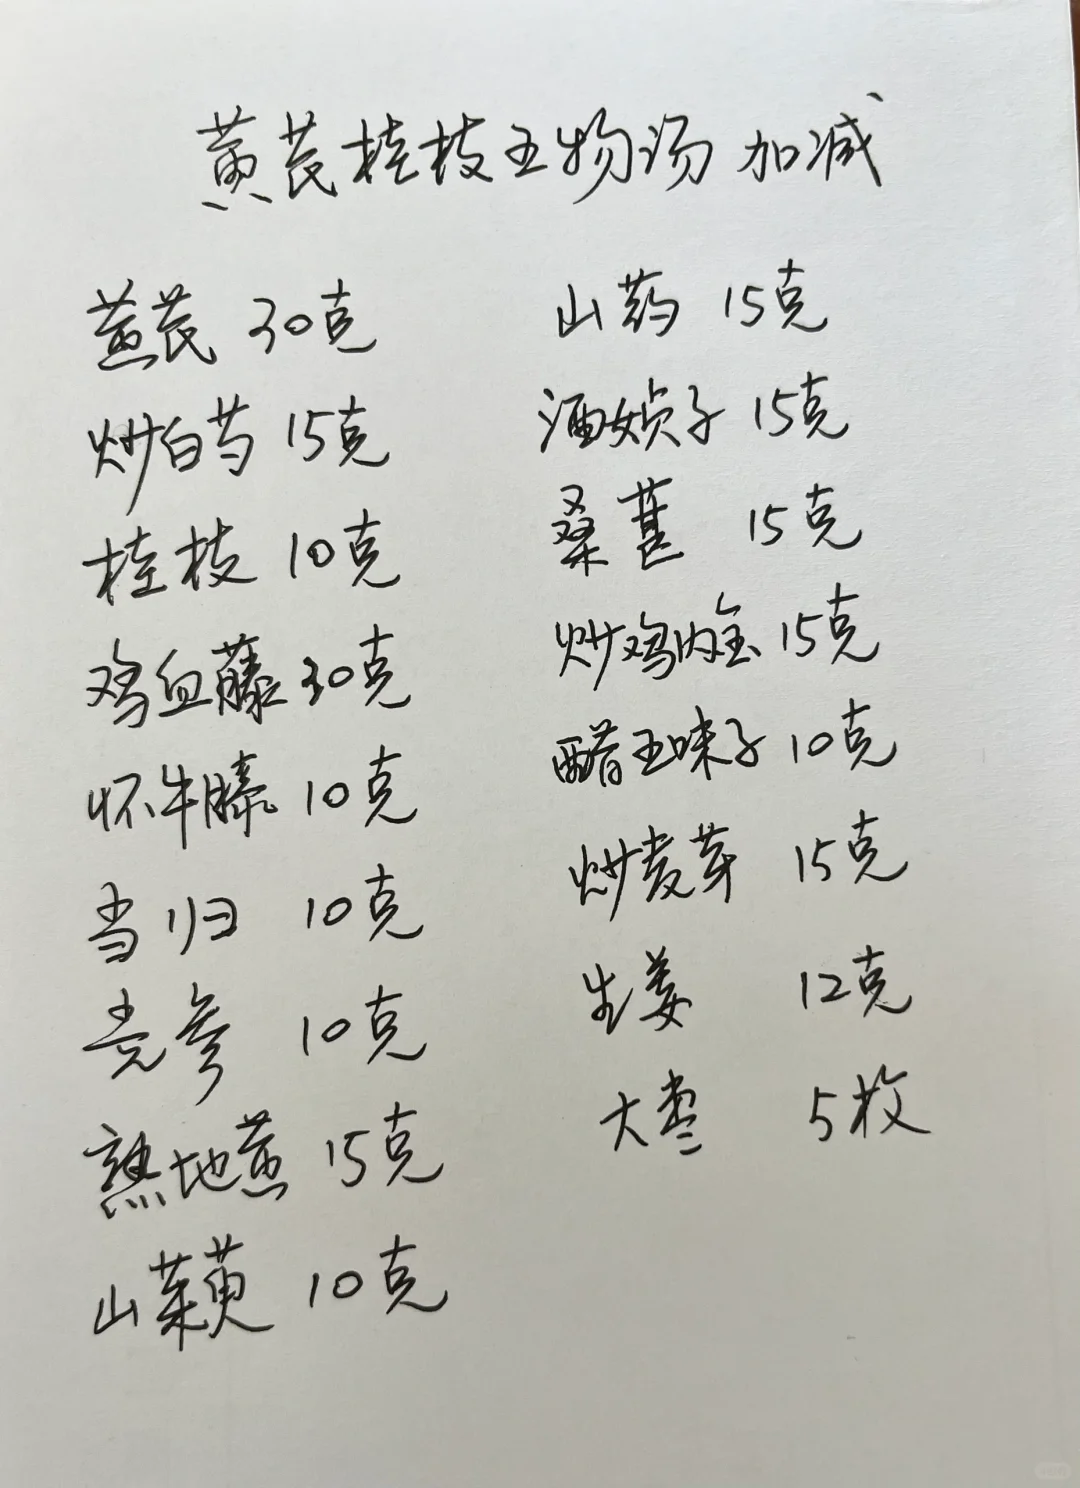 黄芪桂枝五物汤 加减
黄芪 30克
炒白芍 15克
桂枝 10克
鸡血藤 30克
怀牛膝 10克
当归 10克
党参 10克
熟地黄 15克
山茱萸 10克
山药 15克
酒女贞子 15克
桑葚 15克
炒鸡内金 15克
醋五味子 10克
炒麦芽 15克
生姜 12克
大枣 5枚